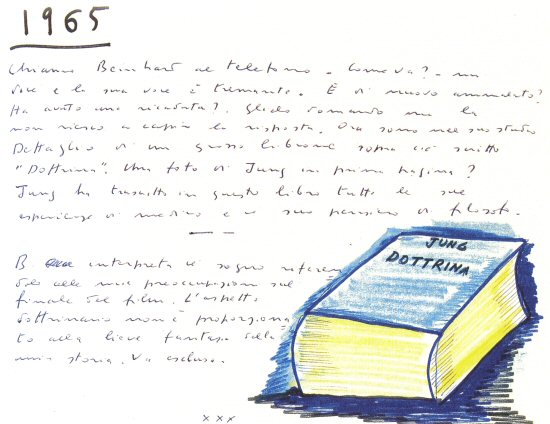 1965
Chiamo Bernhard al telefono - Come va? - mi
dice e la sua voce è tremante. È di nuovo ammalato?
Ha avuto una ricaduta? Glielo domando ma
non riesco a capire la risposta. Ora sono nel suo studio
Dettaglio di un grosso librone sopra c'è scritto
"Dottrina". Una foto di Jung in prima pagina?
Jung ha trascritto in questo libro tutte le sue
esperienze di medico e il suo pensiero di filosofo.
B interpreta il sogno riferen
dolo alle mie preoccupazioni sul
finale del film. L'aspetto
dottrinario non è proporziona
to alla lieve fantasia della
mia storia. Va escluso.
JUNG
DOTTRINA
x x x